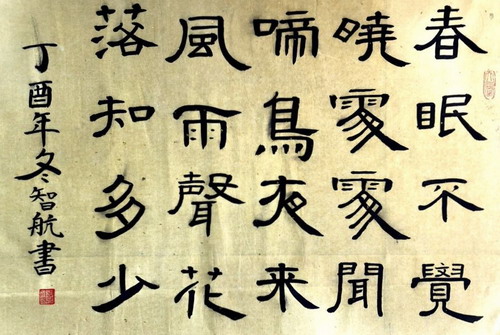 春眠不覺
曉處處聞
啼鳥夜来
風雨聲花
落知多少
丁酉年冬智航書